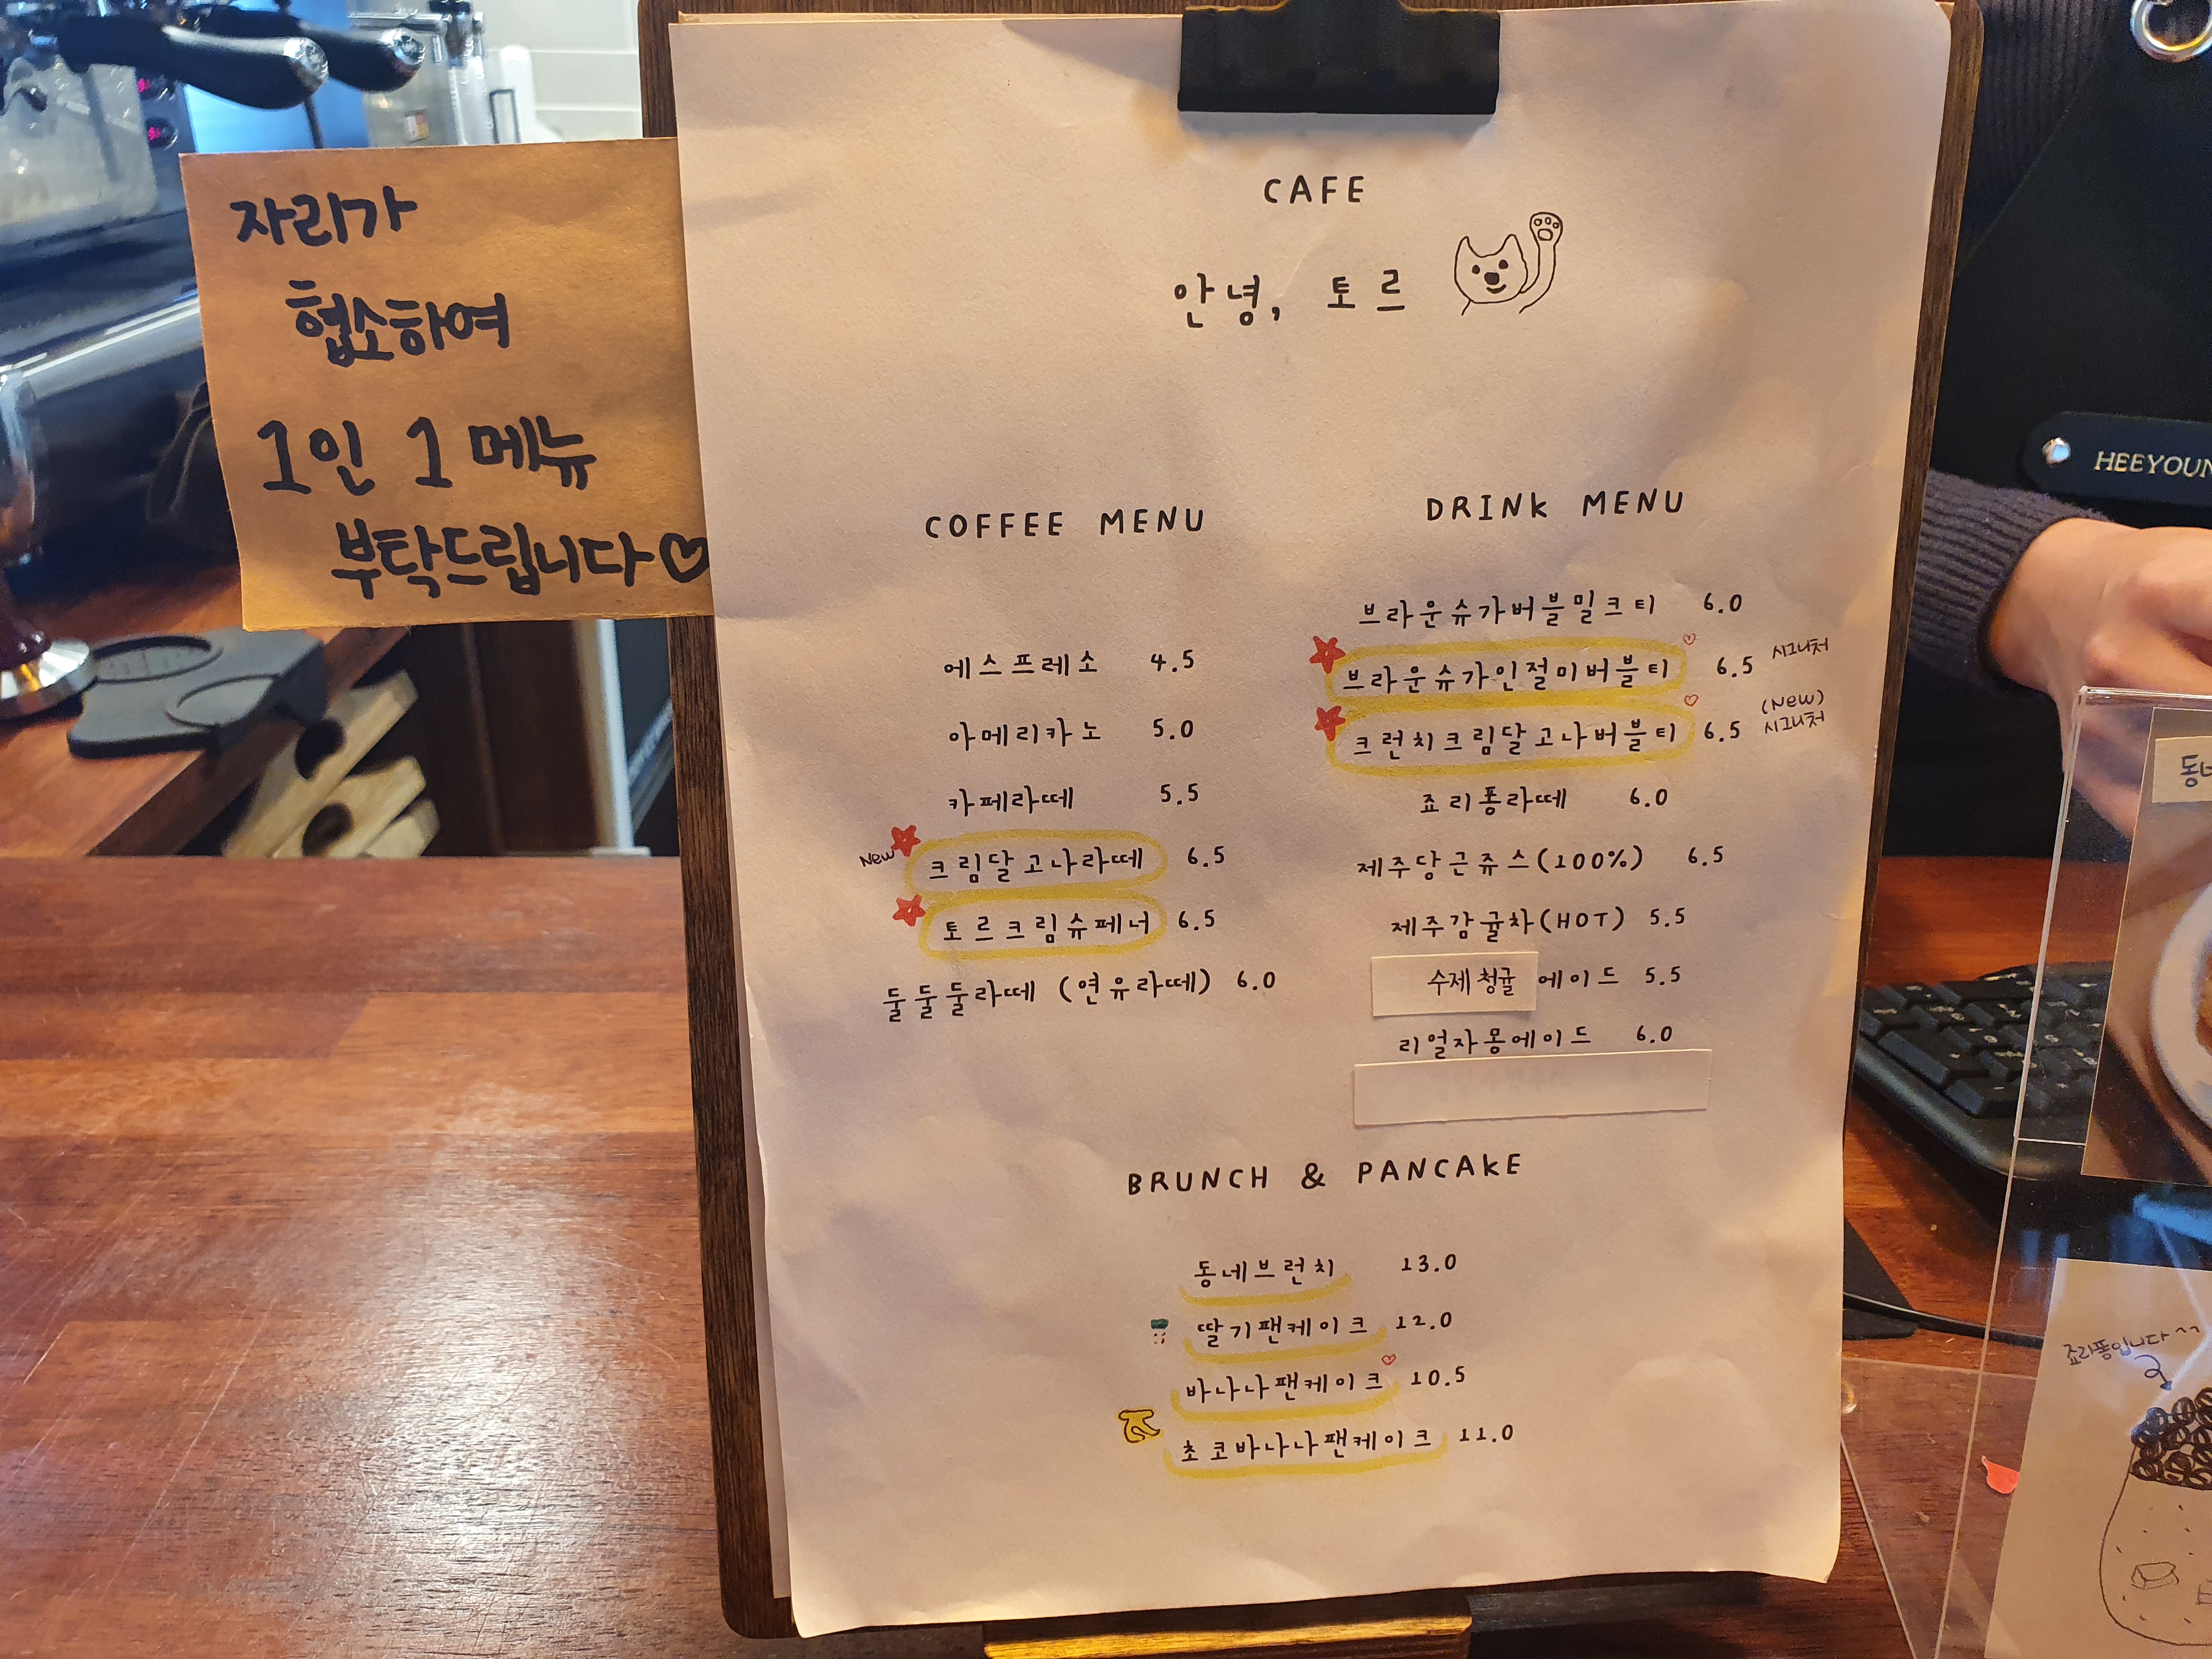 자리가
협소하여
1인 1메뉴
부탁드립니다♡
CAFE
안녕, 토르
COFFEE MENU
에스프레소 4.5
아메리카노 5.0
카페라떼 5.5
New 크림달고나라떼 6.5
토르크림슈페너 6.5
둘둘둘라떼 (연유라떼) 6.0
DRINK MENU
브라운슈가버블밀크티 6.0
브라운슈가인절미버블티 6.5 시그니처
크런치크림달고나버블티 6.5 (New) 시그니처
죠리퐁라떼 6.0
제주당근쥬스(100%) 6.5
제주감귤차(HOT) 5.5
수제청귤에이드 5.5
리얼자몽에이드 6.0
BRUNCH & PANCAKE
동네브런치 13.0
딸기팬케이크 12.0
바나나팬케이크 10.5
초코바나나팬케이크 11.0
HEEYOUN
동네
죠리퐁입니다^^